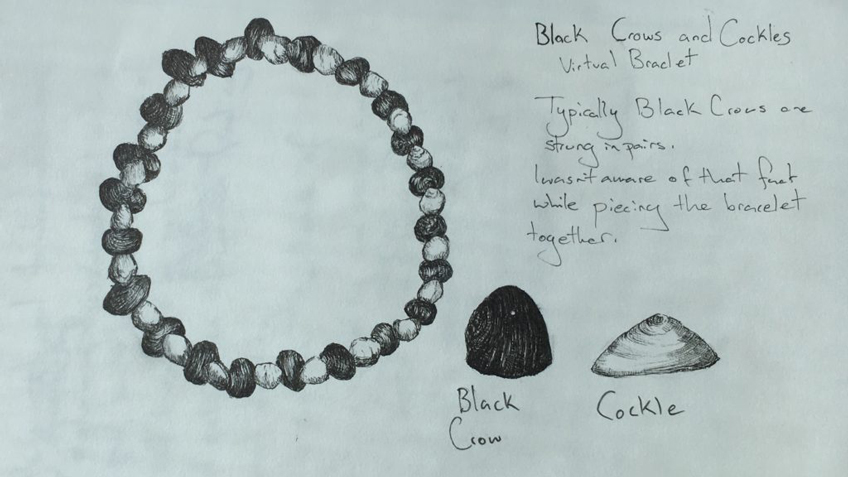 Black Crows and Cockles
Virtual Braclet
Typically Black Crows are
strung in pairs.
I wasn't aware of that fact
while piecing the bracelet
together.
Black
Crow
Cockle